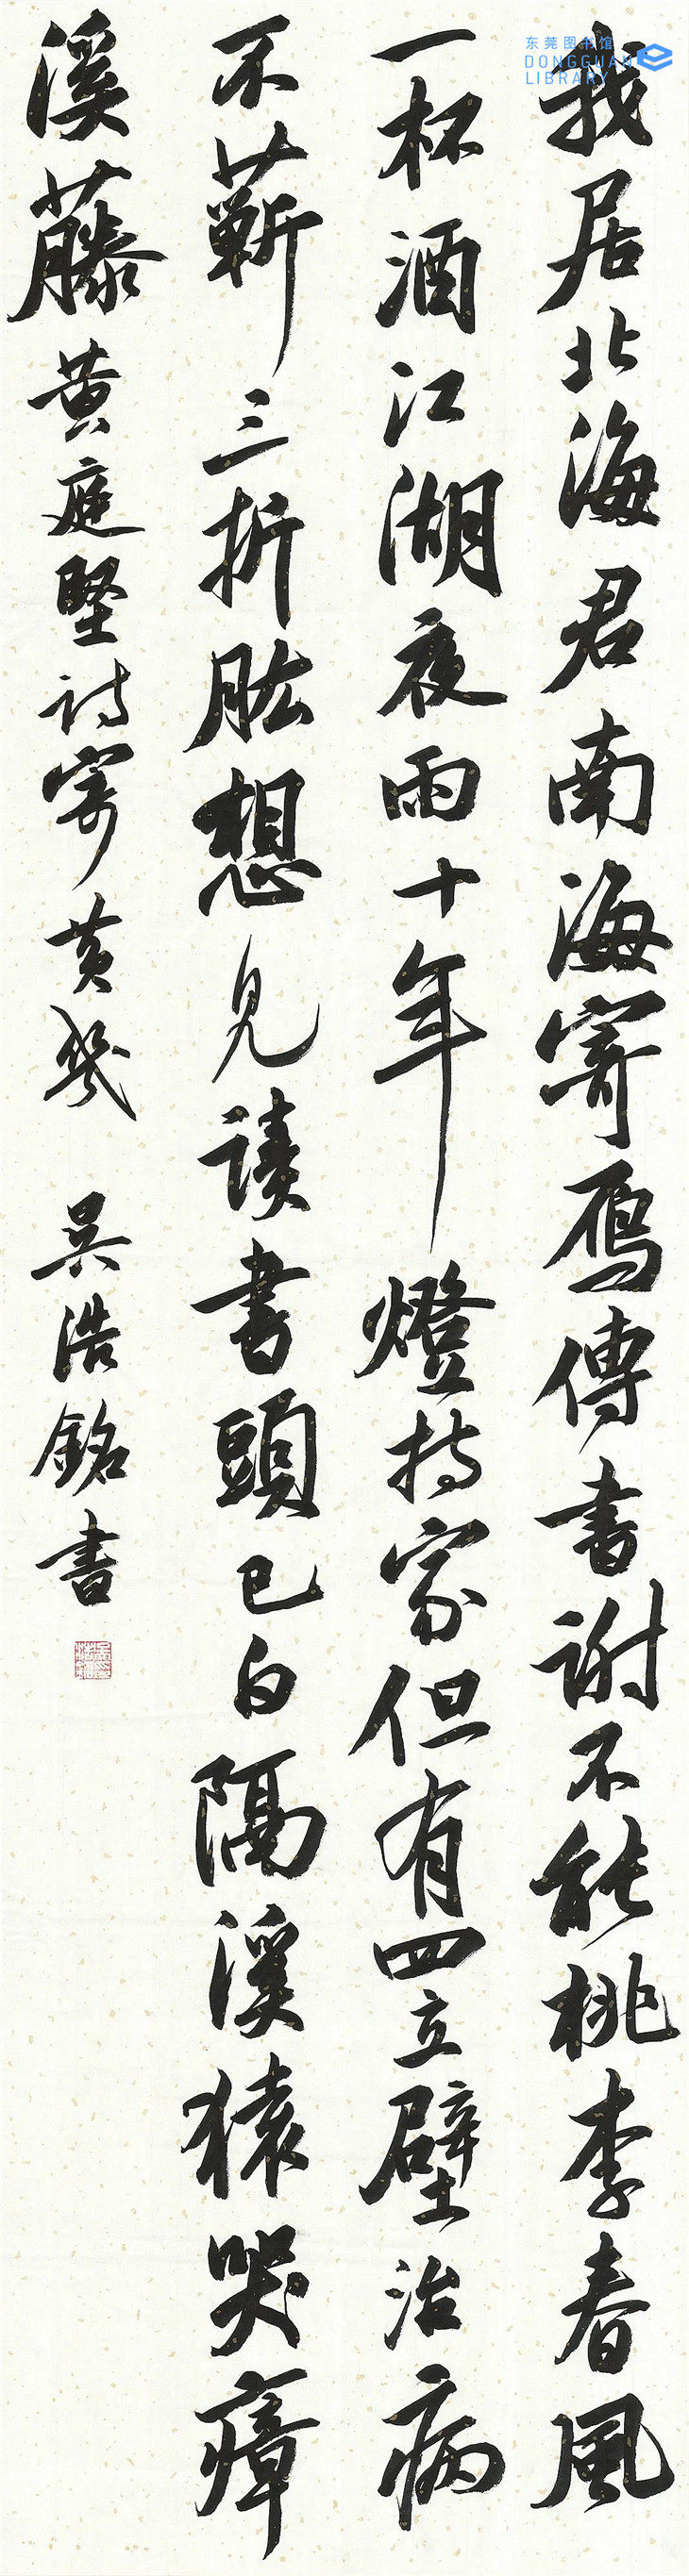 东莞图书馆
DONGGUAN
LIBRARY
我居北海君南海寄鴈傳書謝不能桃李春風
一杯酒江湖夜雨十年燈持家但有四立壁治病
不蘄三折肱想見读書頭已白隔溪猿哭瘴
溪藤黄庭堅詩寄黄幾 吴浩銘書